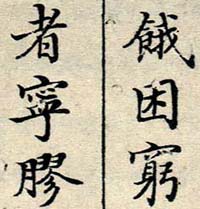 餓困窮
者寧膠